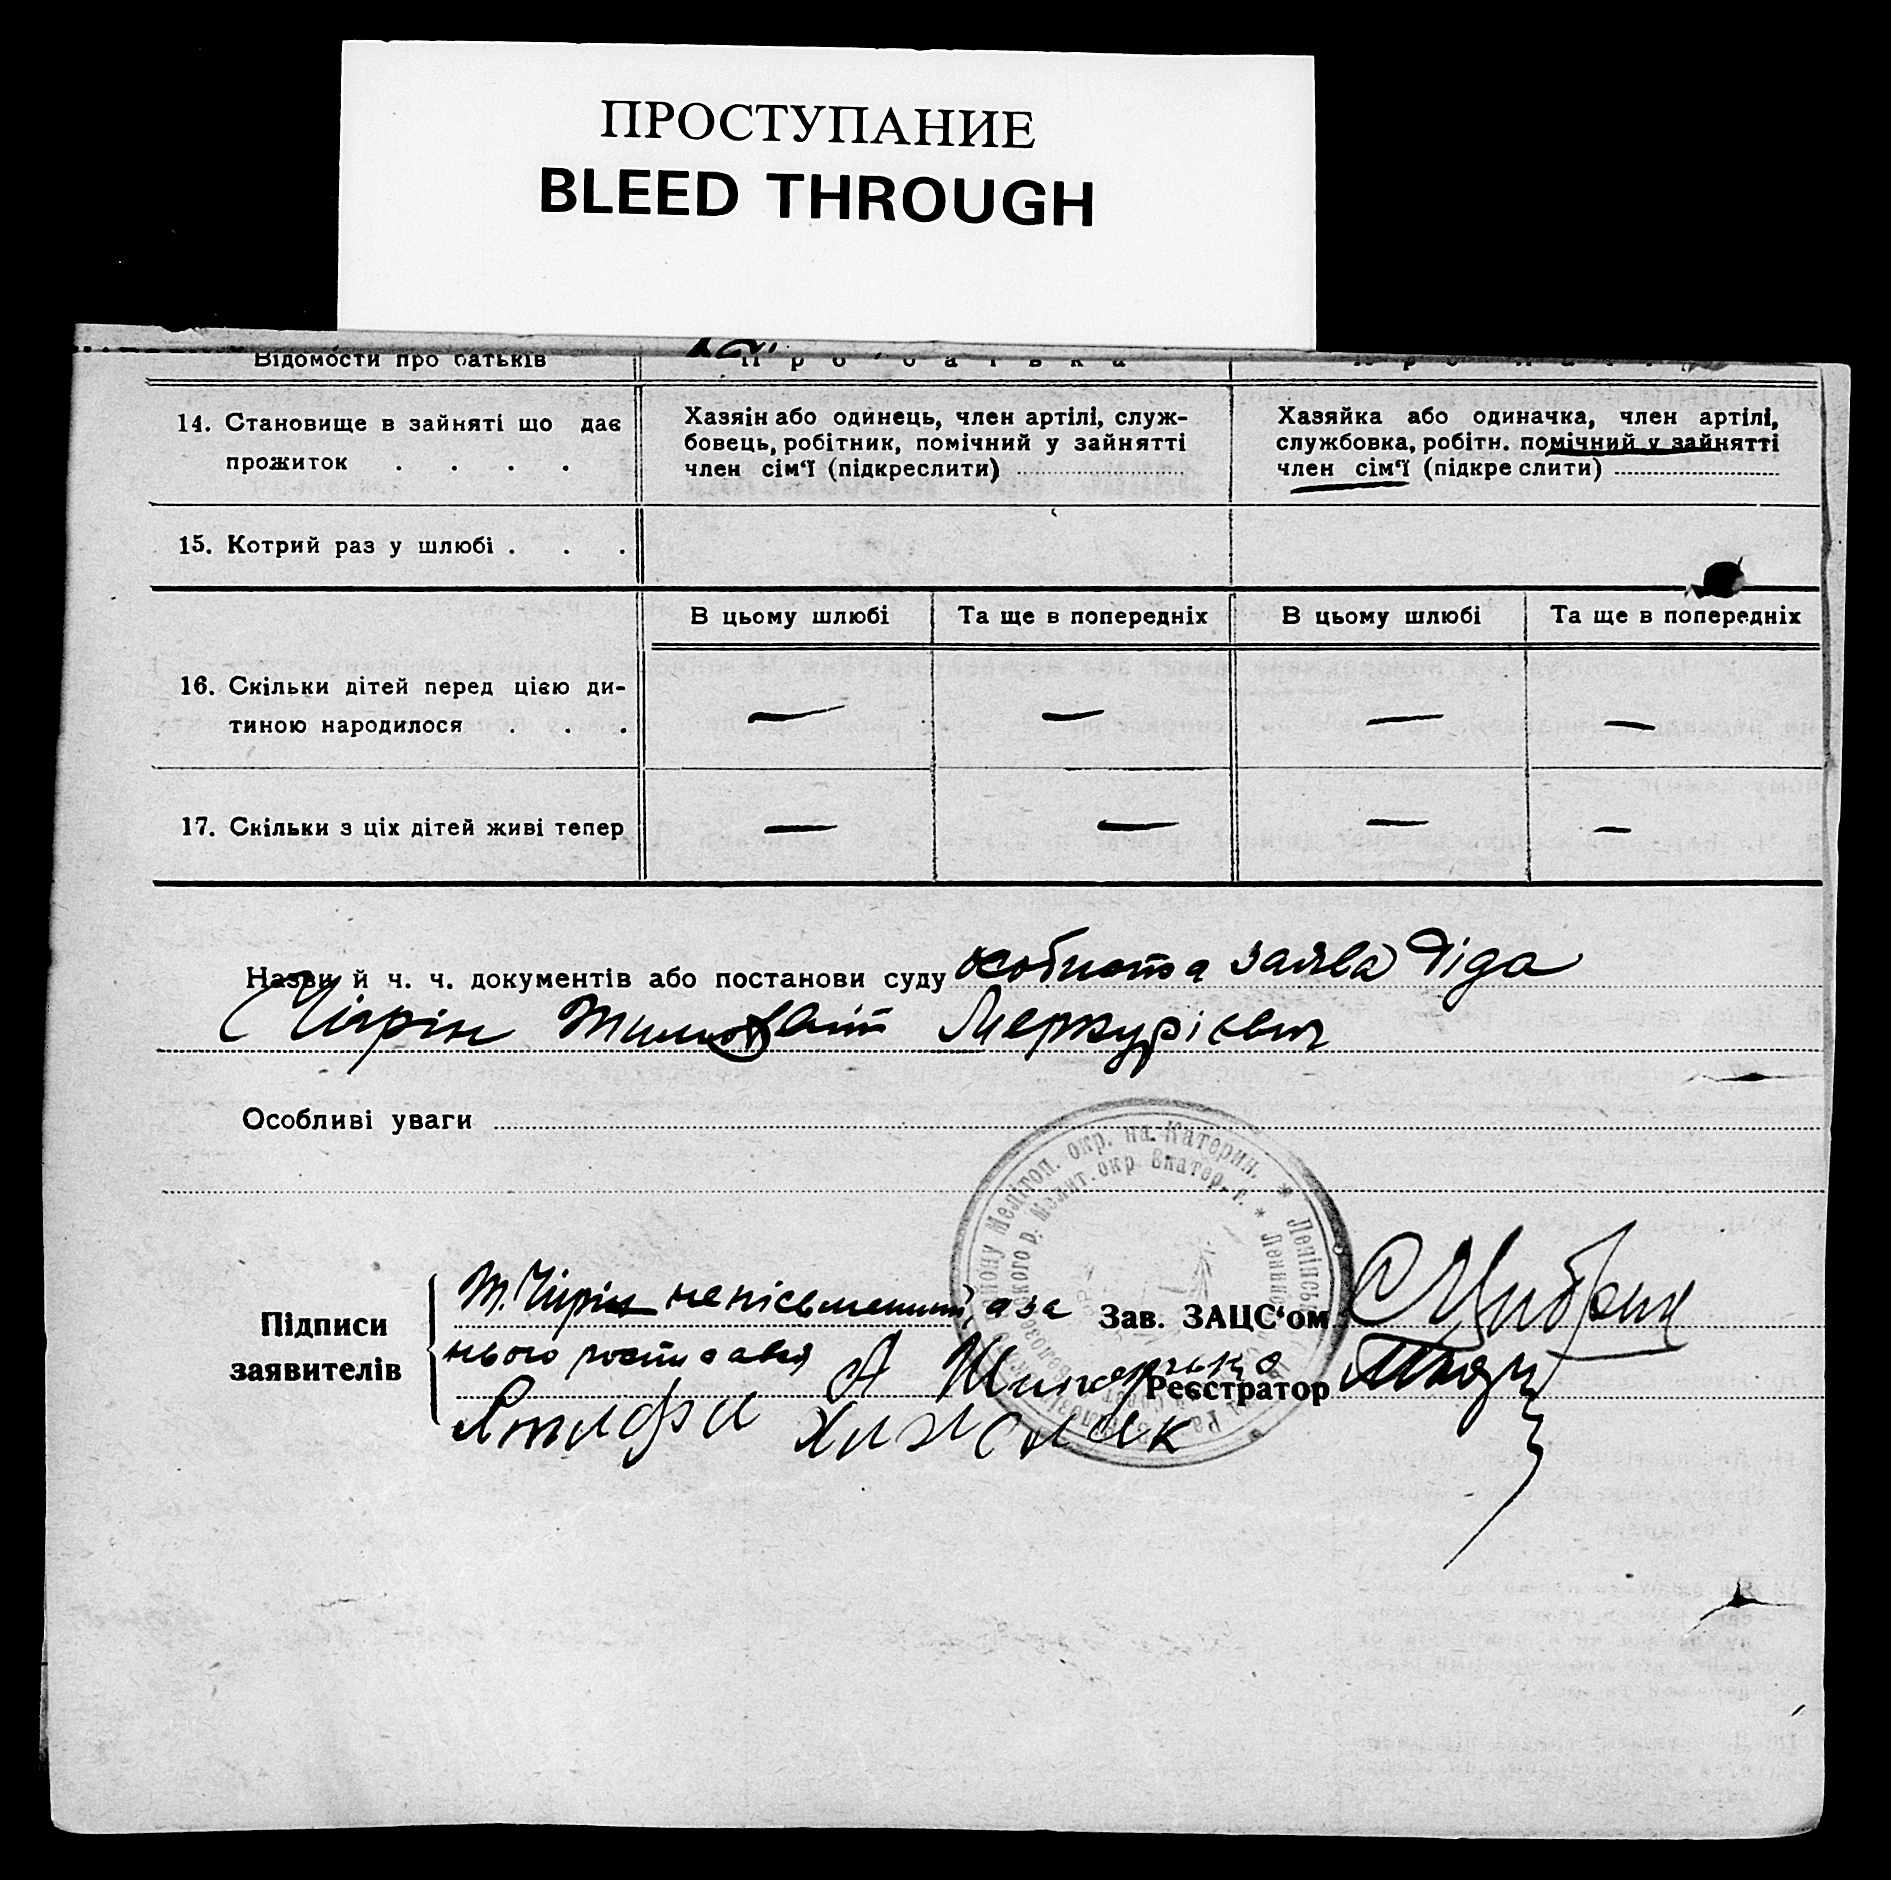 ПРОСТУПАНИЕ
BLEED THROUGH
Відомости про батьків
Про батька
14. Становище в зайняті що дає прожиток . . . .
Хазяін або одинець, член артілі, служ-
бовець, робітник, помічний у зайнятті
член сім'ї (підкреслити)
Хазяйка або одиначка, член артілі,
службовка, робітн. помічний у зайнятті
член сім'ї (підкреслити)
15. Котрий раз у шлюбі . . .
В цьому шлюбі Та ще в попередніх В цьому шлюбі Та ще в попередніх
16. Скільки дітей перед цією ди-
тиною народилося . . .
— — — —
17. Скільки з ціх дітей живі тепер
— — — —
Назви й ч. ч. документів або постанови суду особиста заява діда
Чігрін Меркурієвич
Особливі уваги
Підписи
заявителів
Т. Чігрін неписьменний а за
нього росписався А
Зав. ЗАЦС'ом
Реєстратор
Мелітоп. окр. на Катерин. * Ленінськ
Мелит. окр. Екатер. г. * Ленинс